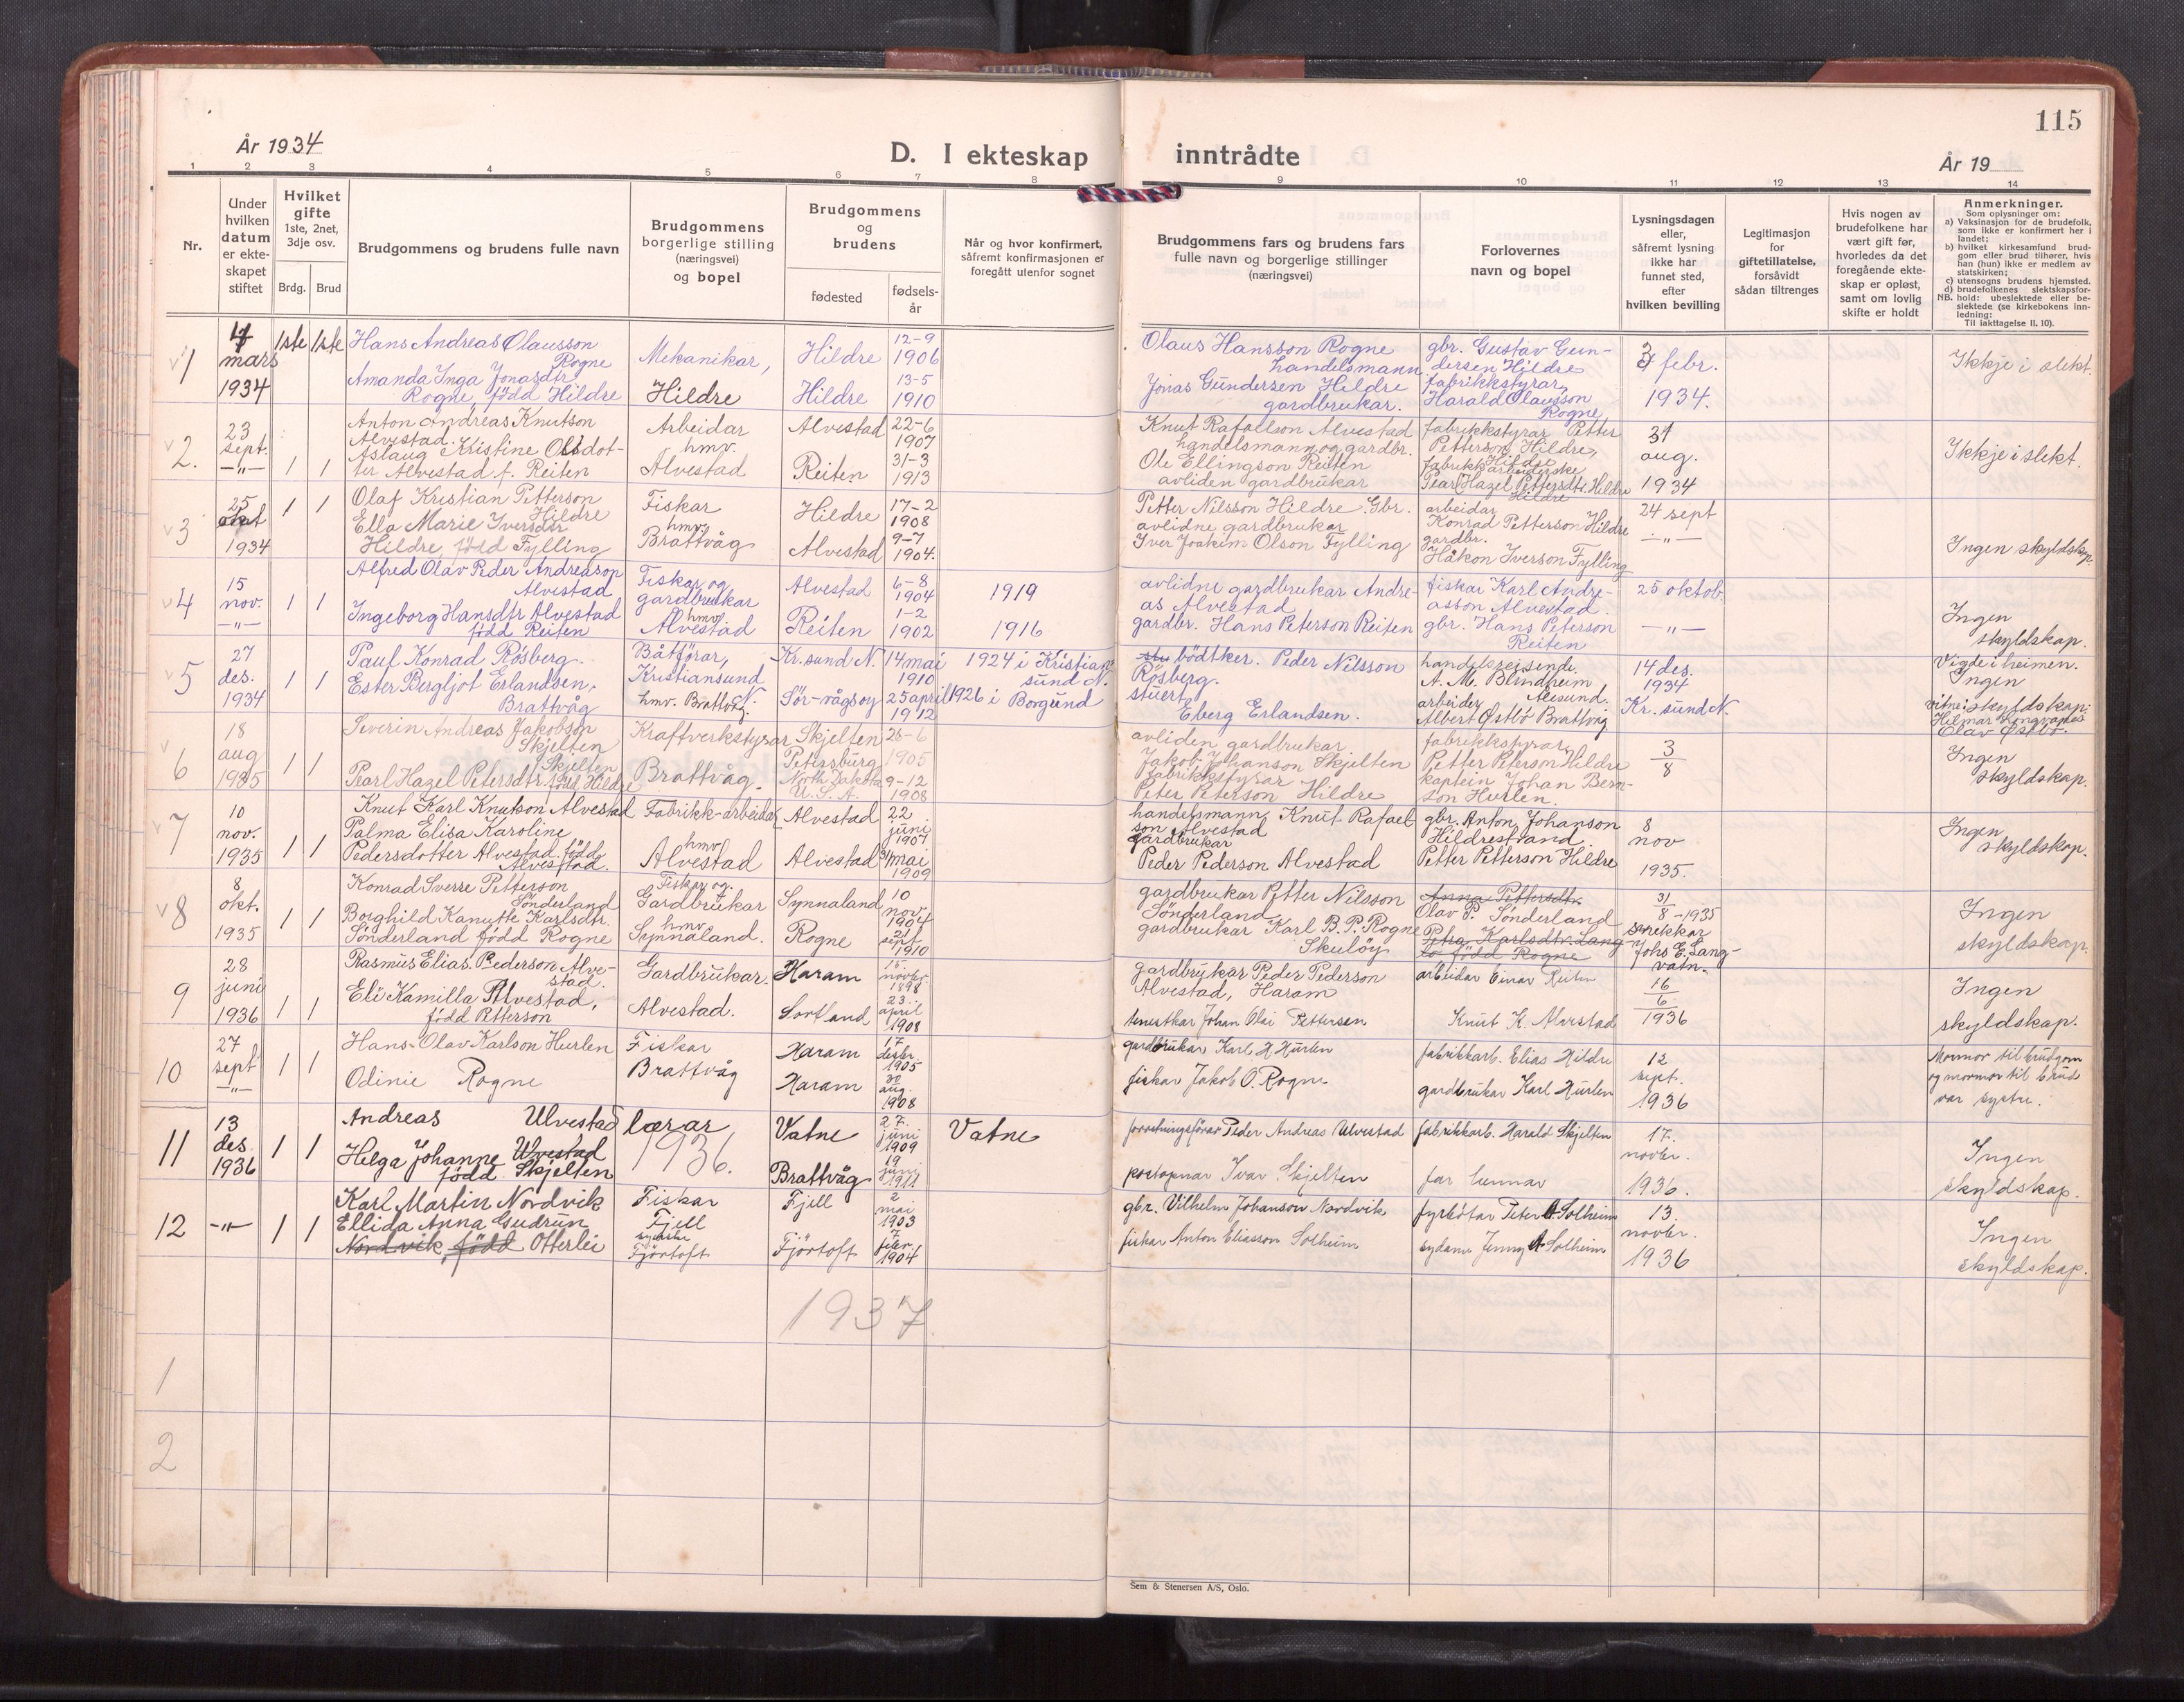 115
År 1934
D. I ekteskap inntrådte
År 19
1 2 3 4 5 6 7 8 9 10 11 12 13 14
Nr.
Under hvilken datum er ekteskapet stiftet
Hvilket gifte 1ste, 2net, 3dje osv.
Brdg. Brud
Brudgommens og brudens fulle navn
Brudgommens borgerlige stilling (næringsvei) og bopel
Brudgommens og brudens
fødested
fødselsår
Når og hvor konfirmert, såfremt konfirmasjonen er foregått utenfor sognet
Brudgommens fars og brudens fars fulle navn og borgerlige stillinger (næringsvei)
Forlovernes navn og bopel
Lysningsdagen eller, såfremt lysning ikke har funnet sted, efter hvilken bevilling
Legitimasjon for giftetillatelse, forsåvidt sådan tiltrenges
Hvis nogen av brudefolkene har vært gift før, hvorledes da det foregående ekteskap er opløst, samt om lovlig skifte er holdt
Anmerkninger.
Som oplysninger om:
a) Vaksinasjon for de brudefolk, som ikke er konfirmert her i landet;
b) hvilket kirkesamfund brudgom eller brud tilhører, hvis han (hun) ikke er medlem av statskirken;
c) utensogns brudens hjemsted.
d) brudefolkenes slektskapsforhold: ubeslektede eller beslektede (se kirkebokens innledning:
NB.
Til iakttagelse II. 10).
1 4 mars 1934 1ste 1ste
Hans Andreas Olausson Rogne
Amanda Inga Jonasdtr Rogne, född Hildre
Mekanikar, Hildre
Hildre 12-9 1906
Hildre 13-5 1910
Olaus Hansson Rogne handelsmann
Jonas Gundersen Hildre gardbrukar.
gbr. Gustav Gundersen Hildre
fabrikkstyrar Harald Olausson Rogne
febr. 1934.
Ikkje i slekt.
2. 23 sept. -"- 1 1
Anton Andreas Knutson Alvestad.
Aslaug Kristine Olsdotter Alvestad f. Reiten
Arbeidar hmv. Alvestad
Alvestad 22-6 1907
Reiten 31-3 1913
Knut Rafaelson Alvestad handelsmann og gardbr.
Ole Ellingson Reiten avliden gardbrukar
fabrikkstyrar Petter Petterson Hildre, Hildre
fabrikkarbeiderske Pearl Hazel Pettersdtr. Hildre Hildre
31 aug. 1934
Ikkje i slekt.
3 25 okt 1934 1 1
Olaf Kristian Petterson Hildre
Ella Marie Iversdtr Hildre, född Fylling
Fiskar hmv. Brattvåg
Hildre 17-2 1908
Alvestad 9-7 1904.
Petter Nilsson Hildre. Gbr.
avlidne gardbrukar Iver Joakim Olson Fylling
arbeidar Konrad Petterson Hildre
gardbr. Håkon Iverson Fylling
24 sept -"-
Ingen skyldskap.
4 15 nov. -"- 1 1
Alfred Olav Peder Andreason Alvestad
Ingeborg Hansdtr Alvestad född Reiten
Fiskar og gardbrukar hmv. Alvestad
Alvestad 6-8 1904 1919
Reiten 1-2 1902 1916
avlidne gardbrukar Andreas Alvestad
gardbr. Hans Peterson Reiten
fiskar Karl Andreasson Alvestad.
gbr. Hans Peterson Reiten
25 oktob. -"-
Ingen skyldskap.
5 27 des. 1934 1 1
Paul Konrad Rösberg.
Ester Bergljot Erlandsen, Brattvåg
Båtförar, Kristiansund N.
hmv. Brattvåg.
Kr.sund N. 14 mai 1910 1924 i Kristiansund N.
Sör-vågsoy 25 april 1912 1926 i Borgund
bödtker. Peder Nilsson Rösberg.
stuert Eberg Erlandsen.
handelsreisende. A. M. Blindheim Aalesund.
arbeider Albert Østbö Brattvåg
14 des. 1934 Kr. sund N.
Vigde i heimen. Ingen skyldskap.
vitne: Hilmar Longvanes
Olav Østbö.
6 18 aug 1935 1 1
Severin Andreas Jakobson Skjelten
Pearl Hazel Petersdtr. Skjelten född Hildre
Kraftverkstyrar Brattvåg.
Skjelten 28-6 1905
Petersburg North Dakota U.S.A. 9-12 1908
avliden gardbrukar Jakob Johanson Skjelten
fabrikkstyrar Peter Peterson Hildre
fabrikkstyrar Petter Peterson Hildre
kaptein Johan Bernson Hurlen.
3/8
Ingen skyldskap.
7 10 nov. 1935 1 1
Knut Karl Knutson Alvestad
Palma Elisa Karoline Pedersdotter Alvestad. född Alvestad.
Fabrikk-arbeidar hmv. Alvestad
Alvestad 22 juni 1901.
Alvestad 31 mai 1909
handelsmann Knut Rafaelson Alvestad
gardbrukar Peder Pederson Alvestad
gbr. Anton Johanson Hildrestrand
Petter Petterson Hildre
8 nov 1935.
Ingen skyldskap.
8 8 okt. 1935 1 1
Konrad Sverre Petterson Sönderland
Borghild Kanutte Karlsdtr. Sönderland född Rogne
Fiskar og Gardbrukar hmv. Synnaland.
Synnaland 10 nov. 1904
Rogne 21 sept 1910
gardbrukar Petter Nilsson Sönderland
gardbrukar Karl B. P. Rogne Skulöy
Anna Pettersdtr.
Olav P. Sönderland
Petra Karlsdtr. Langlo född Rogne
snekkar Johs E. Langvatn.
31/8-1935
Ingen skyldskap.
9 28 juni 1936 1 1
Rasmus Elias. Pederson Alvestad.
Eli Kamilla Alvestad, född Petterson
Gardbrukar. Alvestad.
Haram 15. novbr. 1898
Sortland 23. april 1908
gardbrukar Peder Pederson Alvestad, Haram
tenestkar Johan Olai Pettersen
arbeidar Einar Reiten
Knut K. Alvestad
16/6 1936
Ingen skyldskap.
10 27 sept -"- 1 1
Hans-Olav Karlson Hurlen
Odinie Rogne
Fiskar Brattvåg
Haram 17 desbr. 1905
Haram 30 aug. 1908
gardbrukar Karl H. Hurlen
fiskar Jakob O. Rogne
fabrikkarb. Elias Hildre
gardbrukar Karl Hurlen
12 sept. 1936
Mormor til brudgom og mormor til brud var systre.
11 13 des. 1936 1 1
Andreas Ulvestad
Helga Johanne Ulvestad född Skjelten
lærar 1936.
Vatne 27. juni 1909 Vatne
Brattvåg 19 juni 1911
forretningsförar Peder Andreas Ulvestad
postopnar Ivar Skjelten
fabrikkarb. Harald Skjelten
17. novbr. 1936.
Ingen skyldskap.
12 -"- 1 1
Karl Martin Nordvik
Ellida Anna Gudrun Nordvik, född Otterlei
Fiskar Fjell
Fjörtoft
Fjell 2 mai 1903
Fjörtoft 7 febr. 1904
gbr. Vilhelm Johanson Nordvik
fiskar Anton Eliasson Solheim
fyrbötar Peter A Solheim
sydame Jenny A Solheim
13. novbr. 1936
Ingen skyldskap.
1937.
1
2
Sem & Stenersen A/S, Oslo.